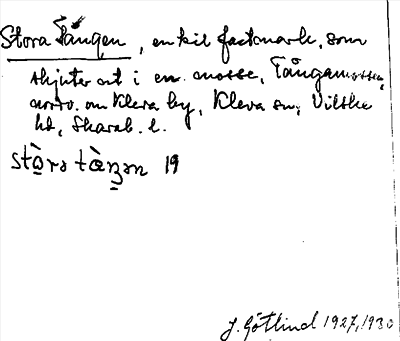 Stora Tången, en kil fastmark, som
skjuter ut i en mosse, Tångamossen,
nordv. om Kleva by, Kleva sn, Vilske
hd, Skarab. l.
19
J. Götlind 1927, 1930